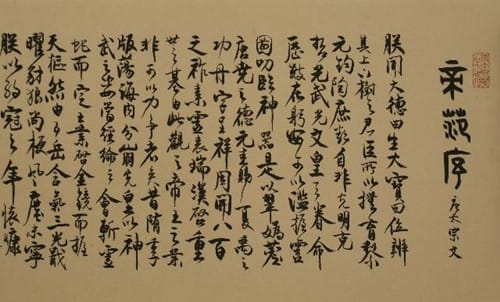 帝范序
唐太宗文
朕聞大德曰生大寶曰位辨
其上下樹之君臣所以撫育黎
元鈞陶庶類自非克明克
哲允武允文皇天眷命
歷數在躬安可以濫握靈
圖叨臨神器是以翠媯薦
唐堯之德元圭賜夏禹之
功丹字呈祥周開八百
之祚素靈表瑞漢啟重
世之基由此觀之帝王之業
非可以力爭者矣昔隋季
版蕩海內分崩先皇以神
武之姿當經綸之會斬靈
蛇而定王業啟金鏡而握
天樞然由五岳含氣三光戢
曜豺狼尚梗風塵未寧
朕以弱冠之年懷慷